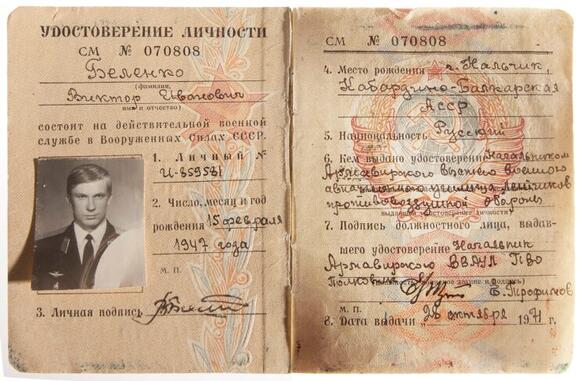 УДОСТОВЕРЕНИЕ ЛИЧНОСТИ
СМ № 070808
Беленко
(фамилия,
Виктор Иванович
имя и отчество)
состоит на действительной военной
службе в Вооруженных Силах СССР.
1. Личный №
И-859581
2. Число, месяц и год
рождения 15 февраля
1947 года
М. П.
3. Личная подпись
СМ № 070808
4. Место рождения г. Нальчик,
Кабардино-Балкарская
АССР
5. Национальность Русский
6. Кем выдано удостоверение Начальником
Армавирского высшего военного
авиационного училища летчиков
противовоздушной обороны
выдавшей удостоверение личности)
7. Подпись должностного лица, выдав-
шего удостоверение Начальник
Армавирского ВВАУЛ ПВО
Полковник Б. Трофимов
М. П.
8. Дата выдачи „28 октября 1971 г.